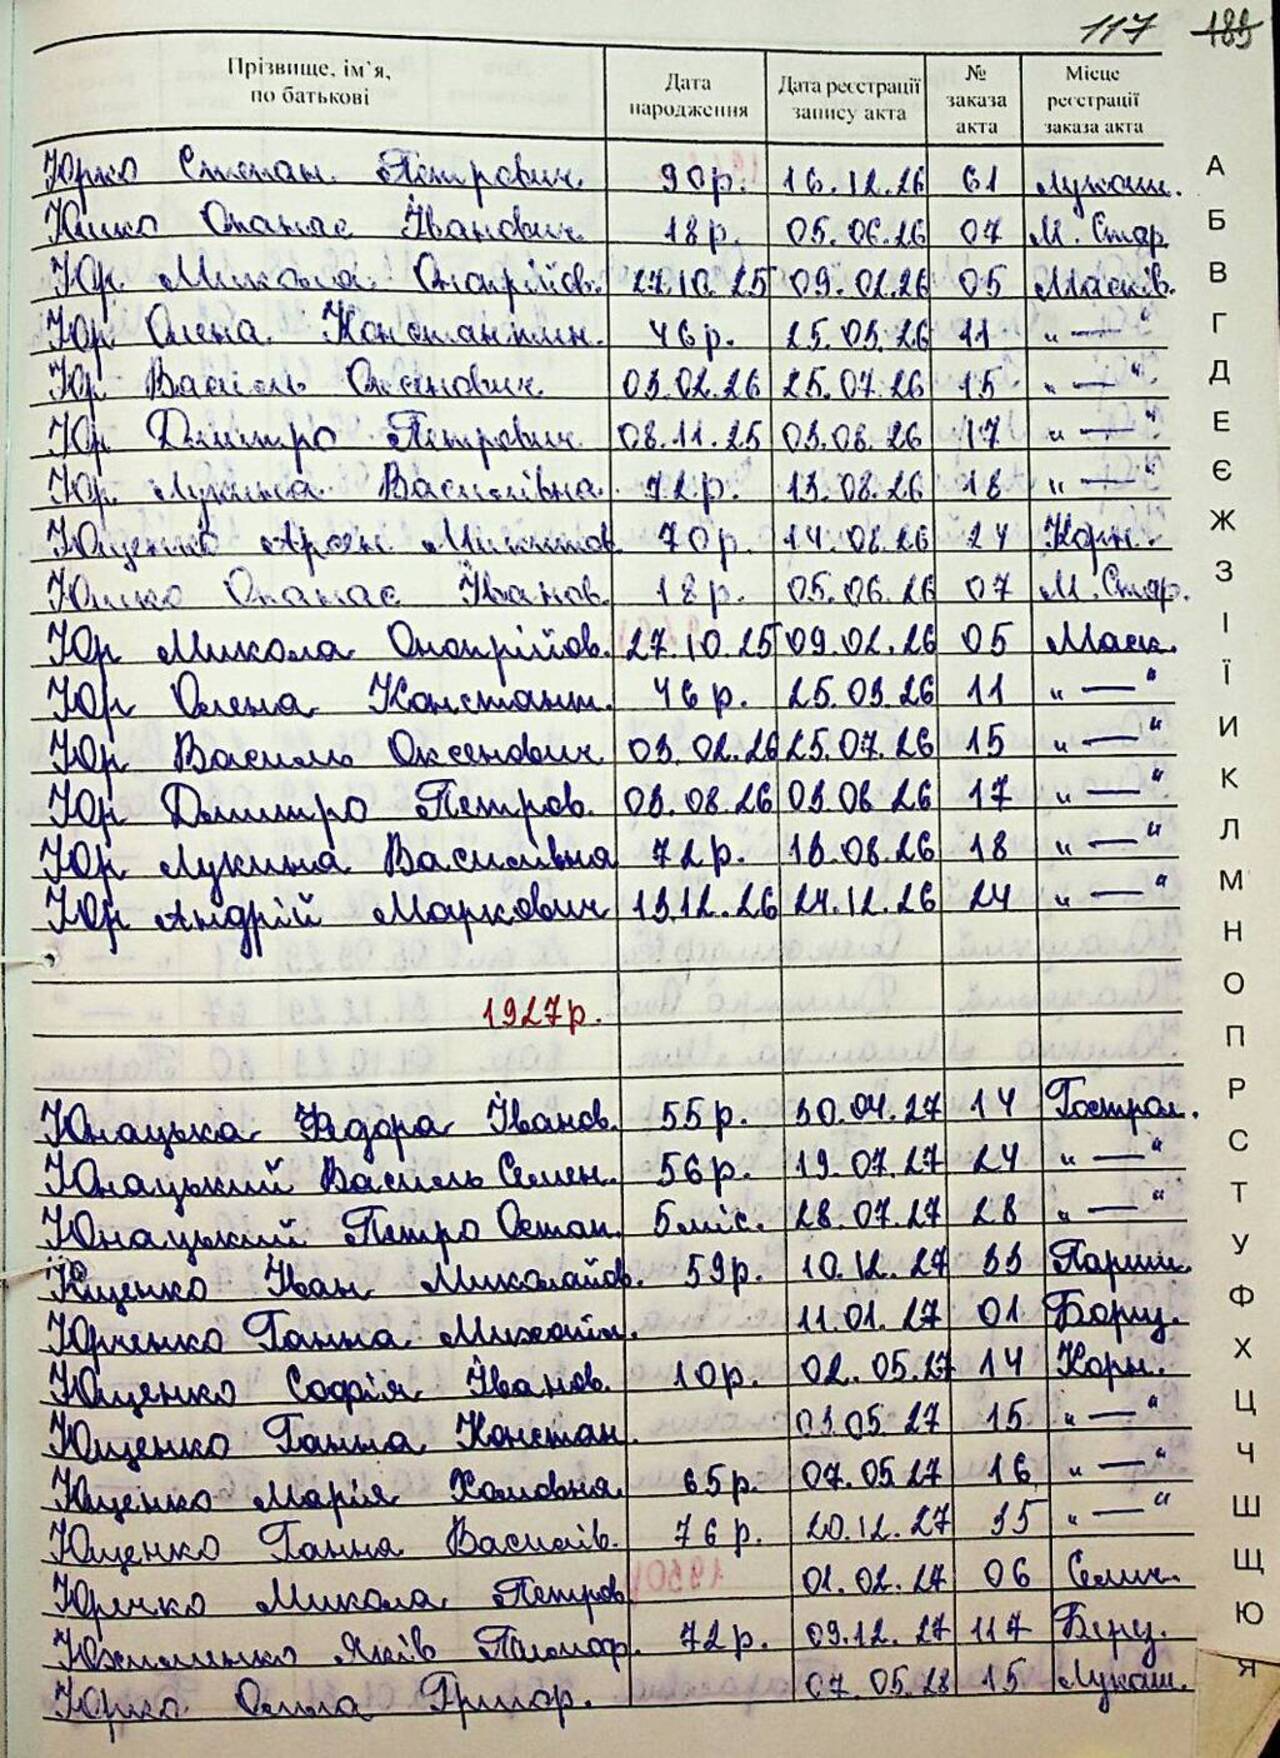 117 189
Прізвище, ім'я, по батькові | Дата народження | Дата реєстрації запису акта | № заказа акта | Місце реєстрації заказа акта
Юрко Степан Петрович. 90р. 16.12.26 61 Лукаш.
Юшко Опанас Іванович 18р. 05.06.26 07 М. Стар.
Юр Микола Онопрійов. 27.10.25 09.02.26 05 Масків.
Юр Олена Константин. 46р. 25.03.26 11 „—"
Юр Василь Оксенович 03.02.26 25.07.26 15 „—"
Юр Дмитро Петрович 08.11.25 03.08.26 17 „—"
Юр Лукина Василівна 72р. 13.08.26 18 „—"
Ющенко Микитов. 70р. 14.08.26 24 Корн.
Юшко Опанас Іванов. 18р. 05.06.26 07 М. Стар.
Юр Микола Онопрійов. 27.10.25 09.02.26 05 Маск.
Юр Олена Констант. 46р. 25.03.26 11 „—"
Юр Василь Оксенович 03.02.26 25.07.26 15 „—"
Юр Дмитро Петров. 03.08.26 03.08.26 17 „—"
Юр Лукина Василівна 72р. 13.08.26 18 „—"
Юр Андрій Маркович 13.12.26 24.12.26 24 „—"
1927р.
Юнацька Федора Іванов. 55р. 30.04.27 14 Гострол.
Юнацький Василь Семен. 56р. 19.07.27 24 „—"
Юнацький Петро Остап. 5міс. 28.07.27 28 „—"
Ющенко Іван Миколайов. 59р. 10.12.27 33 Париш.
Юрченко Ганна Михайл. 11.01.27 01 Борщ.
Ющенко Софія Іванов. 10р. 02.05.27 14 Корн.
Ющенко Ганна Констан. 03.05.27 15 „—"
Ющенко Марія Хомовна. 65р. 07.05.27 16 „—"
Ющенко Ганна Василів. 76р. 20.12.27 35 „—"
Юречко Микола Петров 01.02.27 06 Селич.
Юхименко Яків 72р. 09.12.27 117
Юрко Ольга Григор. 07.05.28 15 Лукаш.
А
Б
В
Г
Д
Е
Є
Ж
З
І
Ї
И
К
Л
М
Н
О
П
Р
С
Т
У
Ф
Х
Ц
Ч
Ш
Щ
Ю
Я